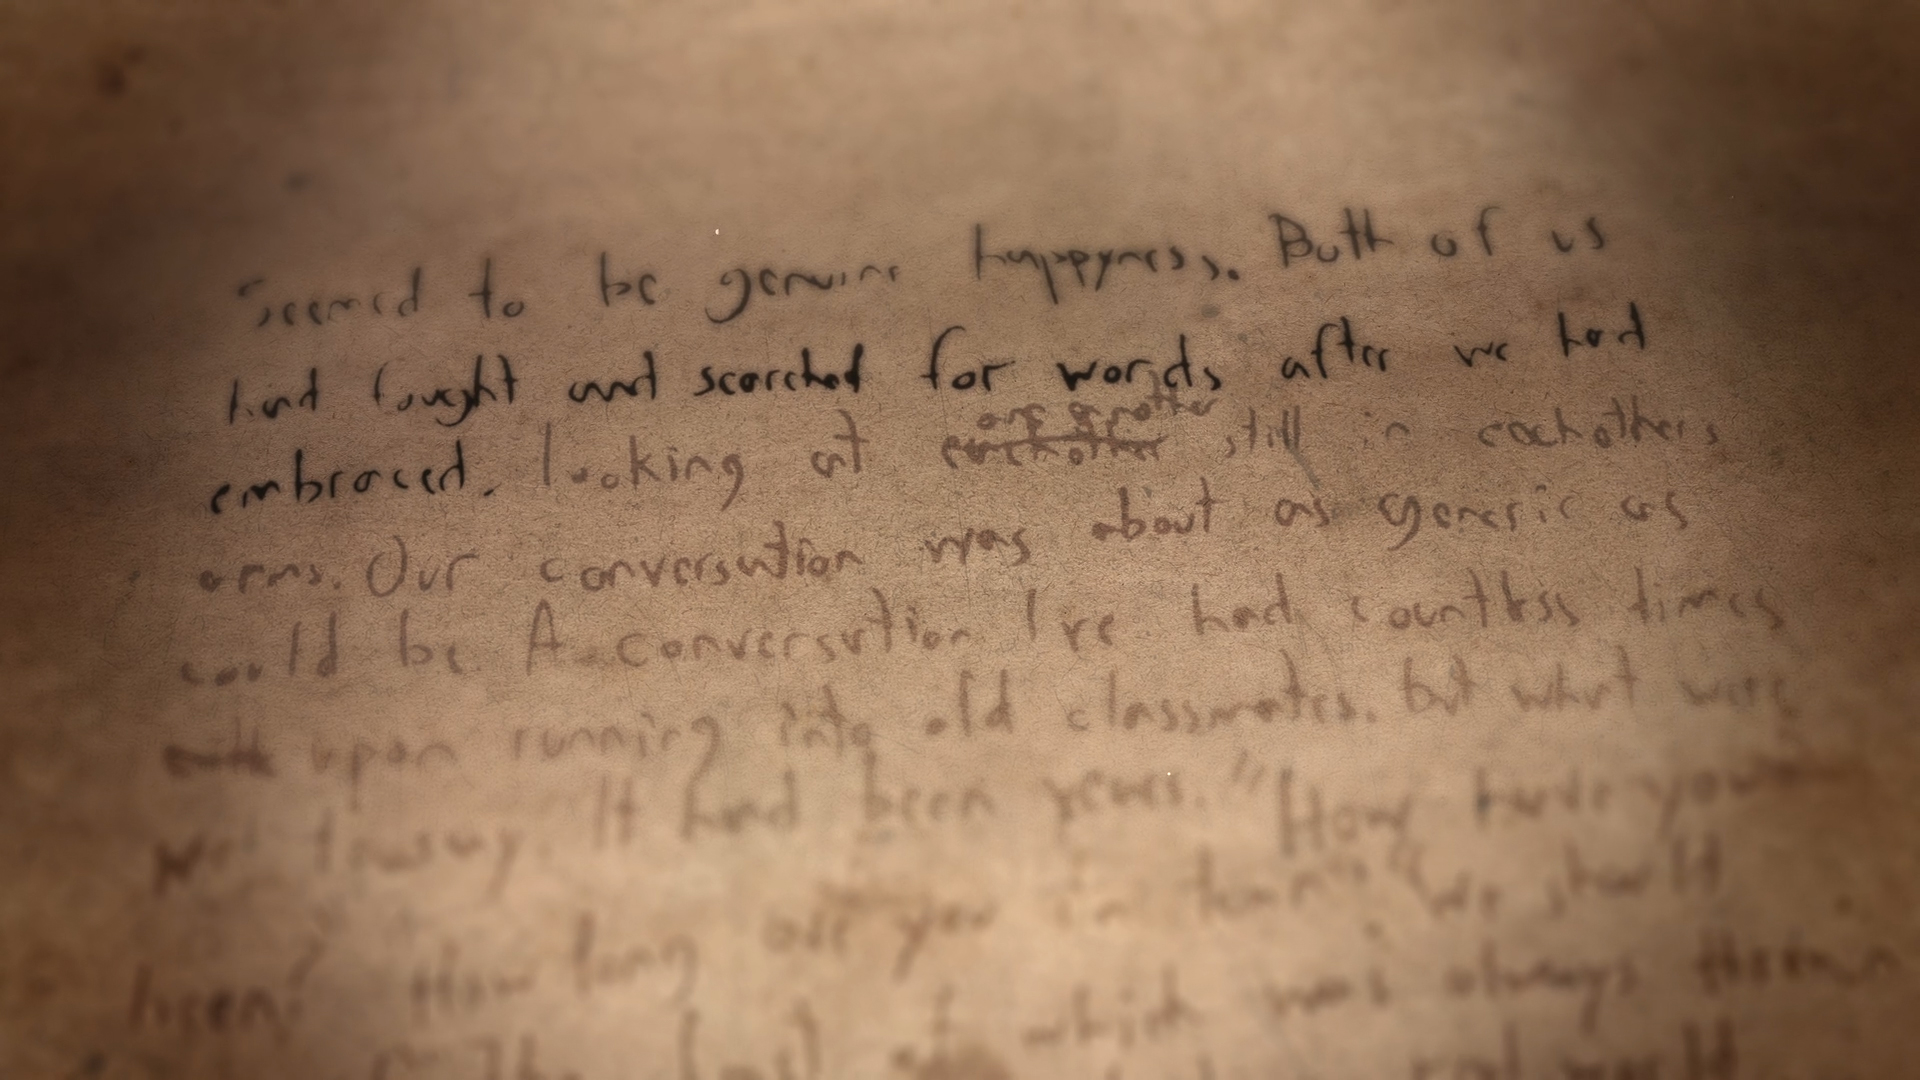 Seemed to be genuine happyness. Both of us
had fought and searched for words after we had
embraced. looking at one another still in eachothers
arms. Our conversation was about as generic as
could be. A conversation I've had countless times
upon running into old classmates. but what were
not to say. It had been years. "How have you
been? How long are you in town" "We should
The last of which was always thrown